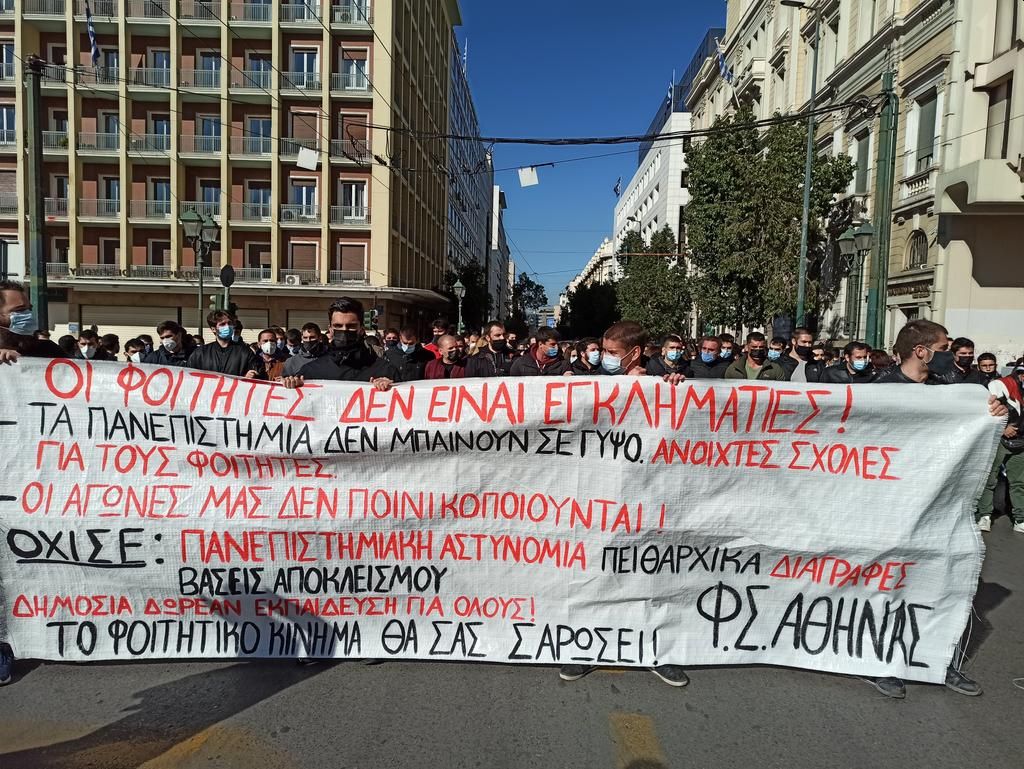 ΟΙ ΦΟΙΤΗΤΕΣ ΔΕΝ ΕΙΝΑΙ ΕΓΚΛΗΜΑΤΙΕΣ!
- ΤΑ ΠΑΝΕΠΙΣΤΗΜΙΑ ΔΕΝ ΜΠΑΙΝΟΥΝ ΣΕ ΓΥΨΟ. ΑΝΟΙΧΤΕΣ ΣΧΟΛΕΣ
ΓΙΑ ΤΟΥΣ ΦΟΙΤΗΤΕΣ.
- ΟΙ ΑΓΩΝΕΣ ΜΑΣ ΔΕΝ ΠΟΙΝΙΚΟΠΟΙΟΥΝΤΑΙ!
ΟΧΙ ΣΕ: ΠΑΝΕΠΙΣΤΗΜΙΑΚΗ ΑΣΤΥΝΟΜΙΑ ΠΕΙΘΑΡΧΙΚΑ ΔΙΑΓΡΑΦΕΣ
ΒΑΣΕΙΣ ΑΠΟΚΛΕΙΣΜΟΥ
ΔΗΜΟΣΙΑ ΔΩΡΕΑΝ ΕΚΠΑΙΔΕΥΣΗ ΓΙΑ ΟΛΟΥΣ!
ΤΟ ΦΟΙΤΗΤΙΚΟ ΚΙΝΗΜΑ ΘΑ ΣΑΣ ΣΑΡΩΣΕΙ!
Φ.Σ. ΑΘΗΝΑΣ